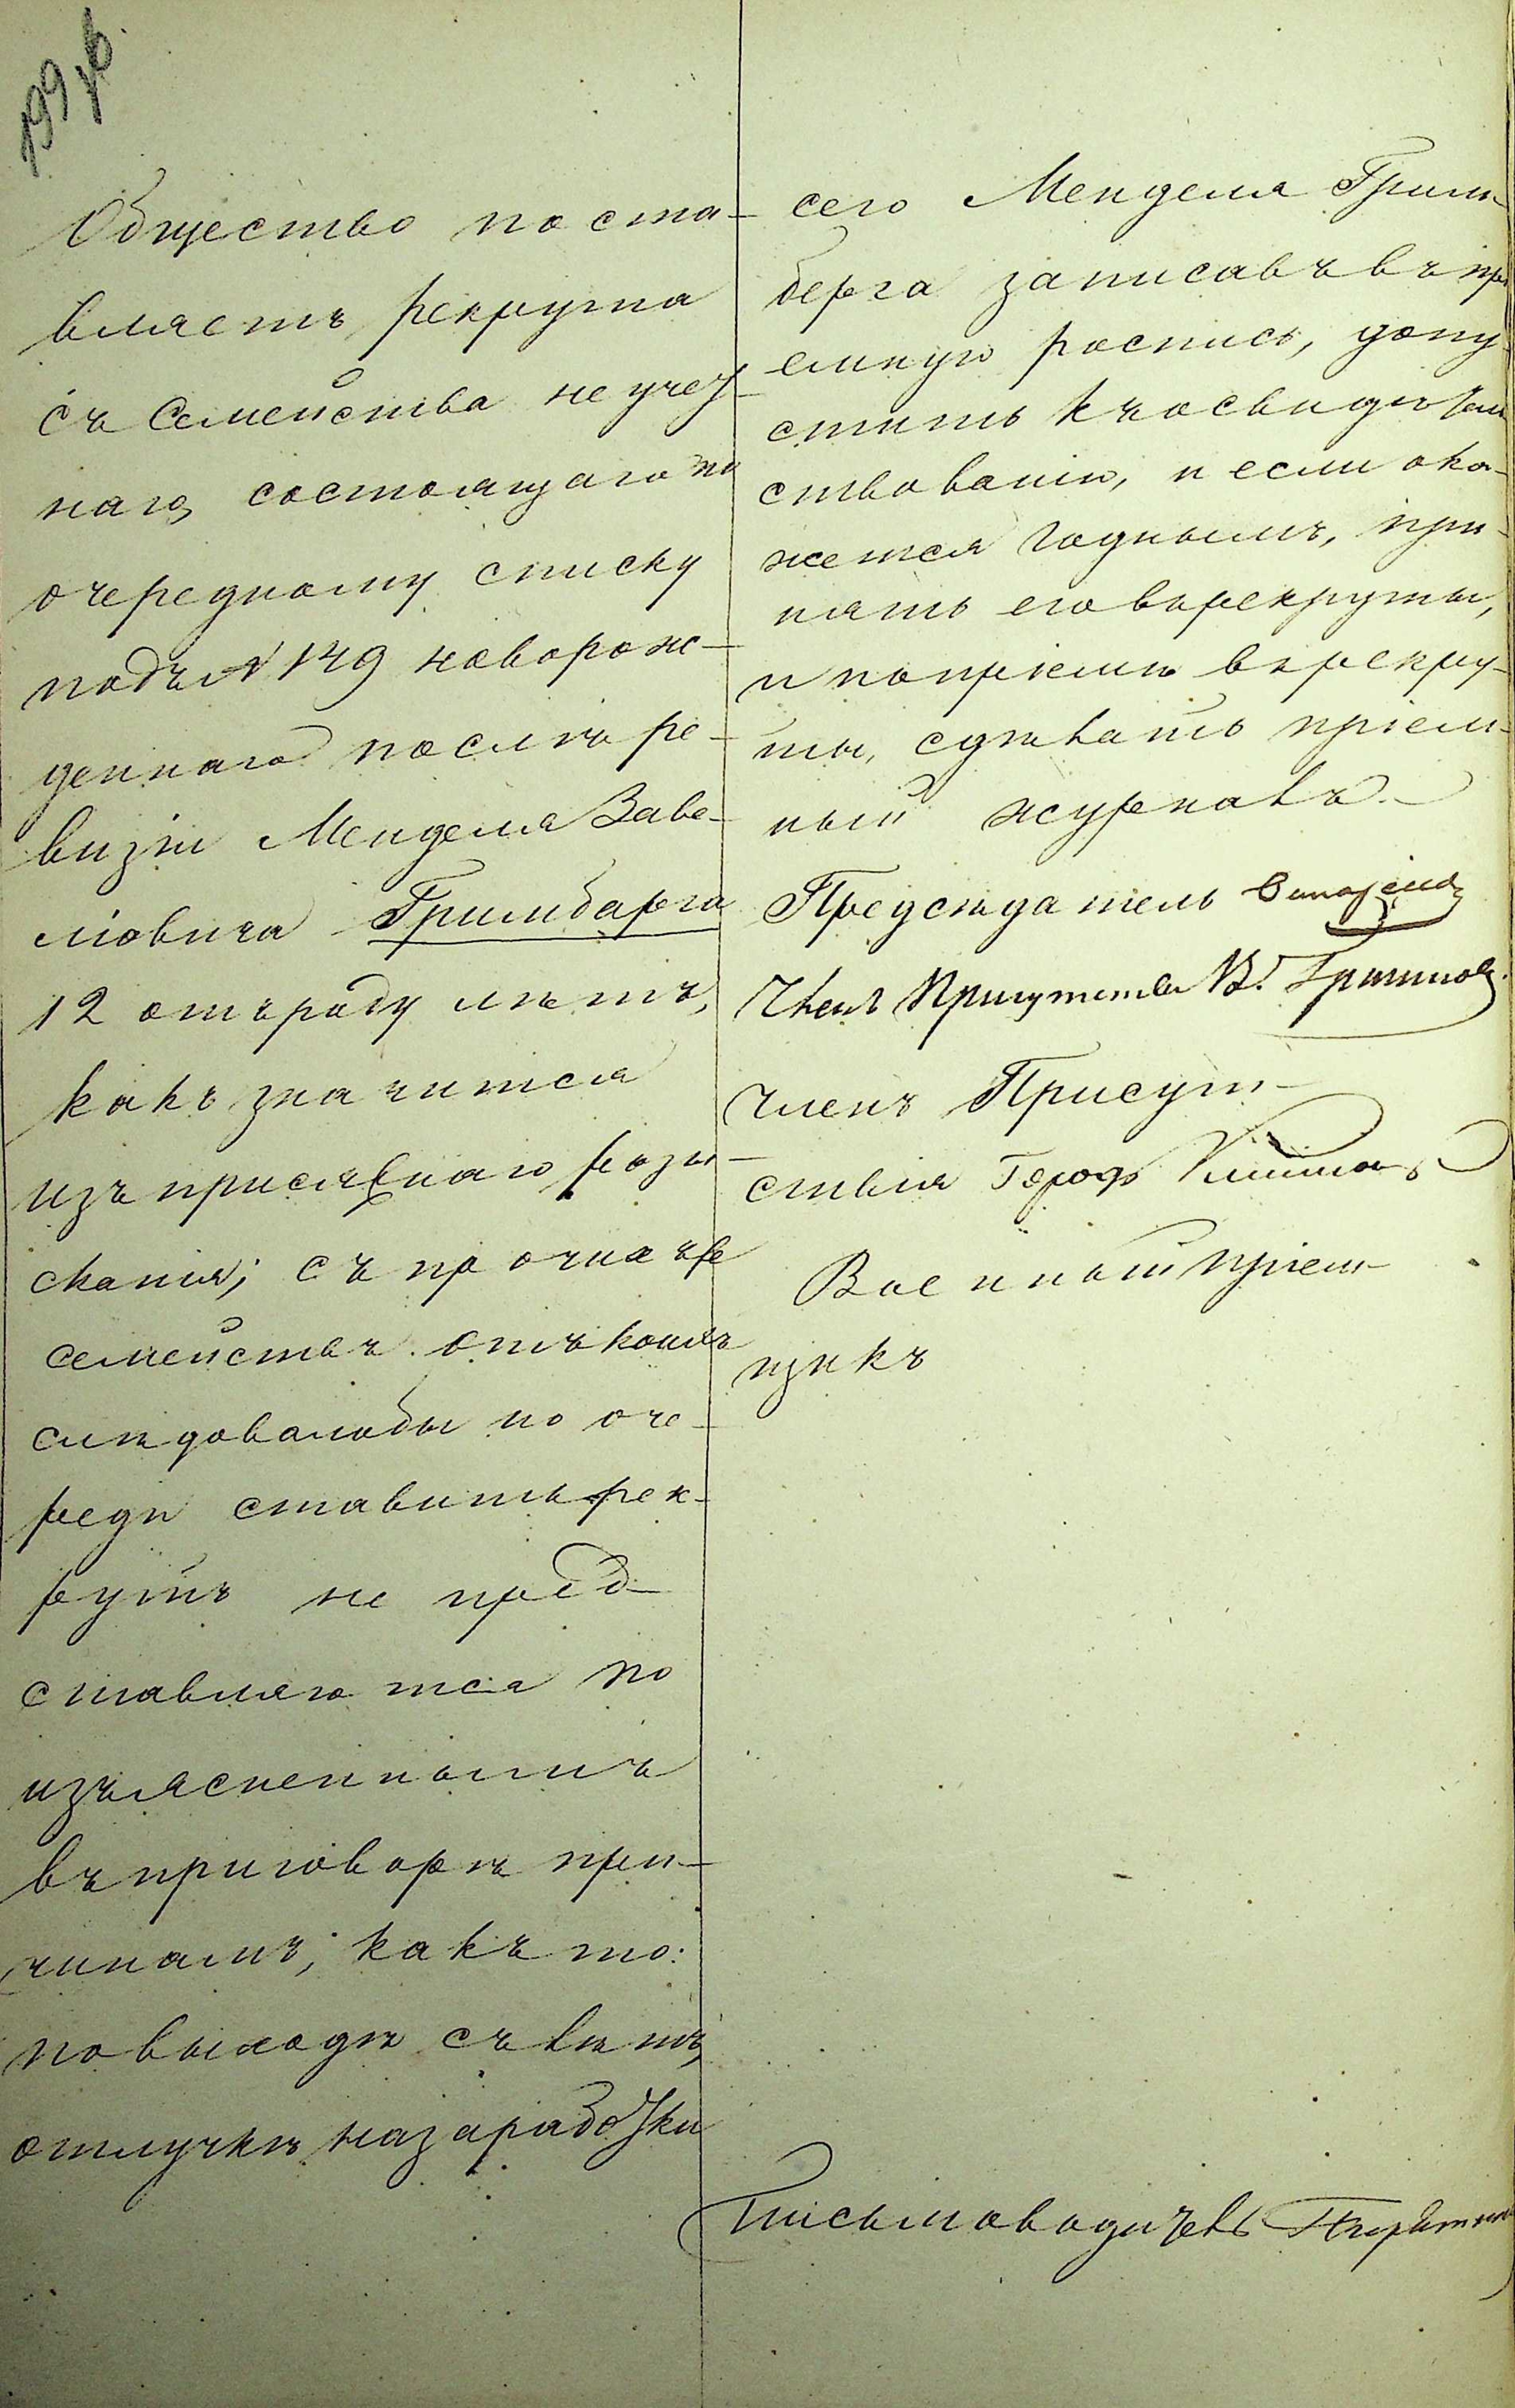 199 об.
Общество поста-
вляетъ рекрута
съ Семейства неучет-
наго, состоящаго по
очередному списку
подъ № 149 новорож-
деннаго послѣ ре-
визіи Менделя Заве-
ліовича Гримбарга
12 отъ роду лѣтъ,
какъ значится
изъ присяжнаго розы-
сканія; съ прочихъ же
семействъ отъ коихъ
слѣдовалобы по оче-
реди ставить рек-
рутъ не пред-
ставляются по
изъясненнымъ
въ приговорѣ при-
чинамъ, какъ то:
по выходѣ съ лѣтъ,
отлучкѣ на заработки
сего Менделя Грим-
берга записавъ въ прі
емную роспись, допу-
стить къ освидѣтель
ствованію, и если ока-
жется годнымъ, при-
нять его въ рекруты,
и по пріемѣ въ рекру-
ты, сдѣлать пріем-
ный журналъ.
Предсѣдатель
Членъ Присутствія В.
Членъ Присут-
ствія Город.
Военный пріем-
щикъ
Письмоводитель